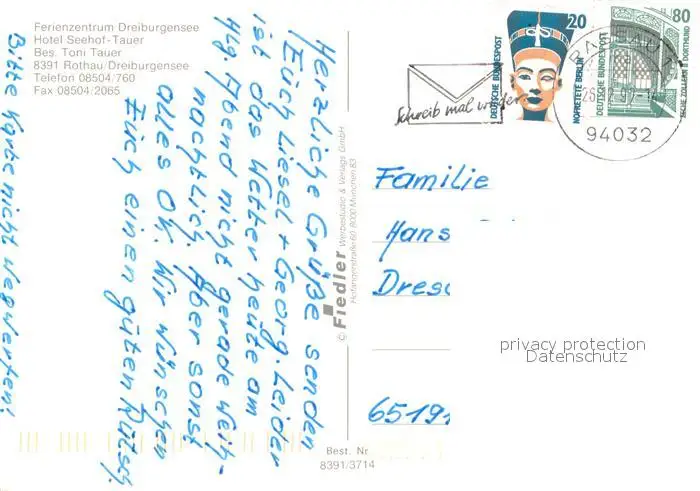 Ferienzentrum Dreiburgensee
Hotel Seehof-Tauer
Bes. Toni Tauer
8391 Rothau/Dreiburgensee
Telefon 08504/760
Fax 08504/2065
Herzliche Grüße senden
Euch Liesel + Georg. Leider
ist das Wetter heute am
Hlg. Abend nicht gerade Weih-
nachtlich. Aber sonst
alles OK. Wir wünschen
Euch einen guten Rutsch.
Bitte Karte nicht wegwerfen!
© Fiedler Werbestudio & Verlags GmbH
Hofangerstraße 60 8000 München 83
Best. Nr.
8391/3714
Schreib mal wieder
20
DEUTSCHE BUNDESPOST
NOFRETETE BERLIN
80
DEUTSCHE BUNDESPOST
PASSAU
94032
Familie
Hans
Dresd
65191
privacy protection
Datenschutz